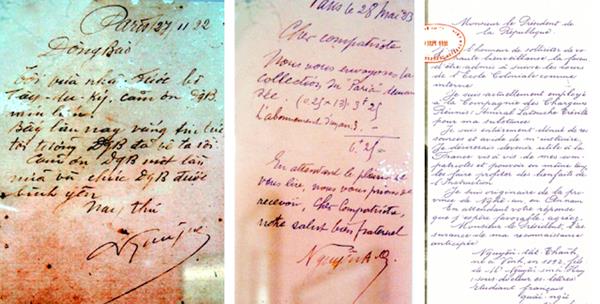 Paris 27 11 22
Đồng Bào
Tôi vừa nhận được bộ
Tây-du-Ký, cảm ơn DgB
tôi tưởng DgB đã về ta rồi
Cảm ơn DgB một lần
nữa và chúc DgB được
bình yên
Nay thư
Paris le 28 Mai 23
Cher compatriote,
Nous vous envoyons la
collection du Paria deman
dée (0.25 x 13) 3f 25
L'abonnement d'un an 3. —
6f 25
En attendant le plaisir de
vous lire, nous vous prions de
recevoir, Cher Compatriote,
notre salut bien fraternel
Nguyen A. Q.
Monsieur le Président de
la République.
l'honneur de solliciter de vo-
tre haute bienveillance la faveur
d'être admis à suivre les cours
de l'Ecole Coloniale comme
interne.
Je suis actuellement employé
à la Compagnie des Chargeurs
Réunis, Amiral Latouche Tréville
pour ma subsistance.
Je suis entièrement dénué de res-
sources et avide de m'instruire.
Je désirerais devenir utile à la
France vis à vis de mes com-
patriotes et pouvoir en même temps
les faire profiter des bienfaits de
l'Instruction.
Je suis originaire de la pro-
vince de Nghê-an, en Annam.
En attendant votre réponse
que j'espère favorable, agréez,
Monsieur le Président, l'as-
surance de ma reconnaissance
anticipée.
Nguyễn tất Thành,
né à Vinh, en 1892, fils
de Mr Nguyễn sinh Huy
sous docteur ès-lettres
Etudiant français,
quốc-ngữ